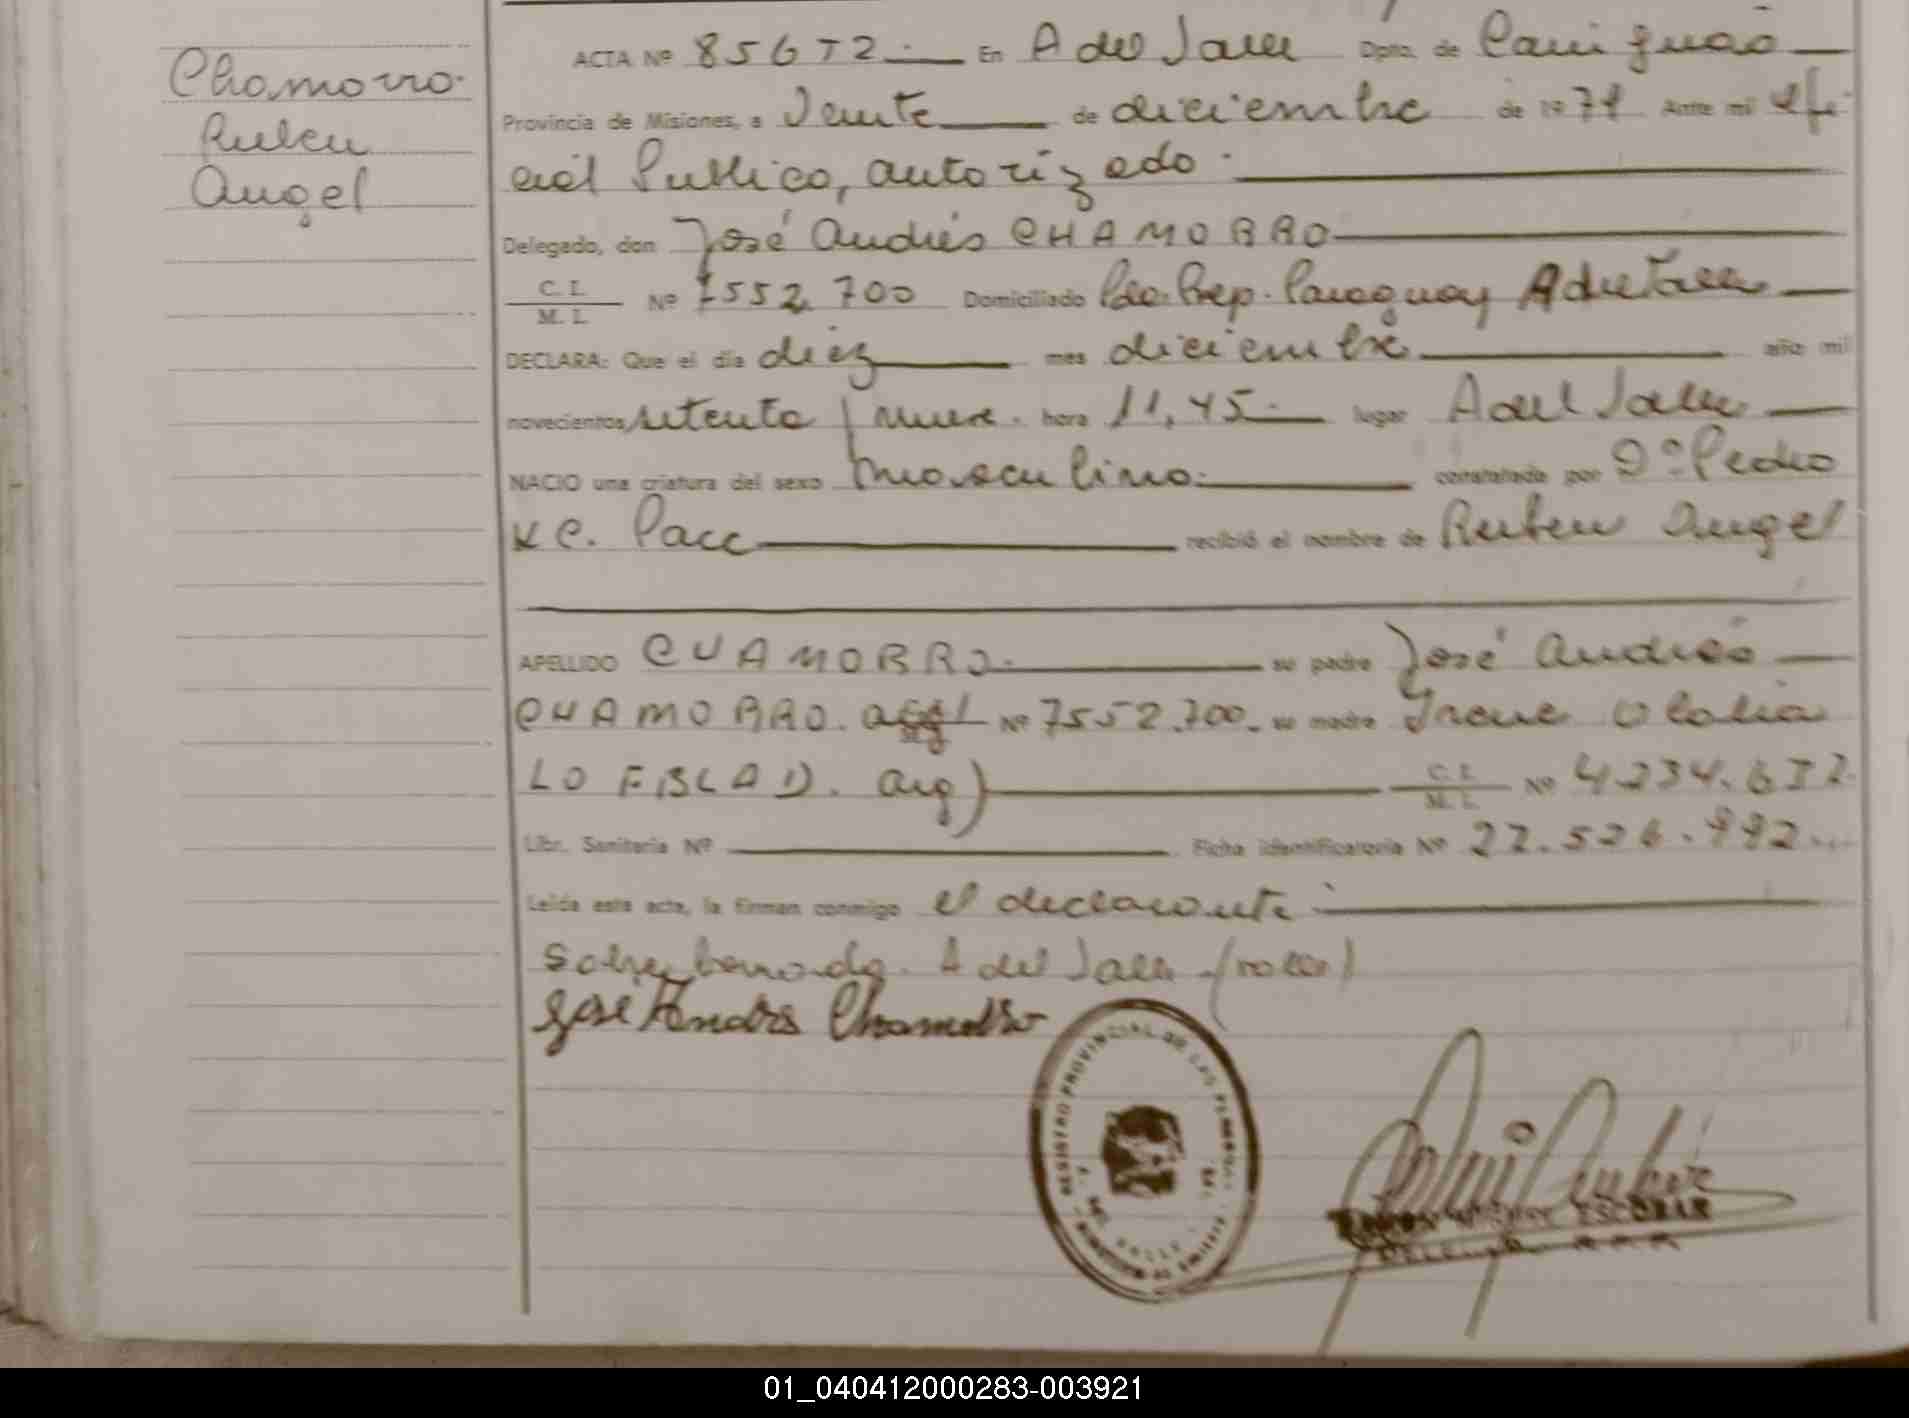 Chamorro.
Ruben
Angel
ACTA Nº 856 T2.— En A del Valle Dpto. de Cainguas
Provincia de Misiones, a Veinte de diciembre de 19 71 Ante mi Ofi-
cial Publico, autorizado.
Delegado, don José Andrés CHAMORRO
C. I. / M. I. Nº 7552.700 Domiciliado Pdo. Rep. Paraguay A del Valle
DECLARA: Que el día diez mes diciembre año mil
novecientos setenta y nueve. hora 11,45.— lugar A del Valle
NACIO una criatura del sexo masculino.— constatada por Dº Pedro
recibió el nombre de Ruben Angel
APELLIDO CHAMORRO.— su padre José Andrés
CHAMORRO. Nº 7552.700. su madre Irene
arg) C. I. / M. I. Nº 4.234.632.
Libr. Sanitaria Nº Ficha identificatoria Nº 27.526.992
Leída esta acta, la firman conmigo el declarante
A del Valle
José Andrés Chamorro
REGISTRO PROVINCIAL DE LAS PERSONAS
ESCOBAR
01_040412000283-003921